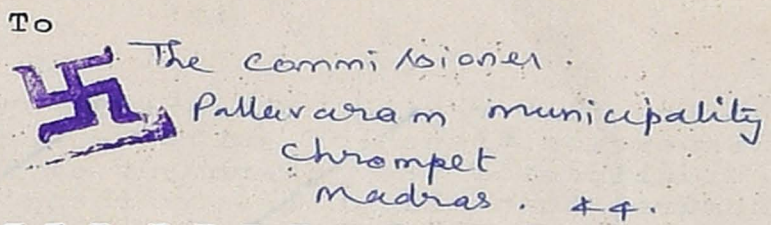 To
The commissioner.
Pallavaram municipality
Chrompet
Madras. 44.